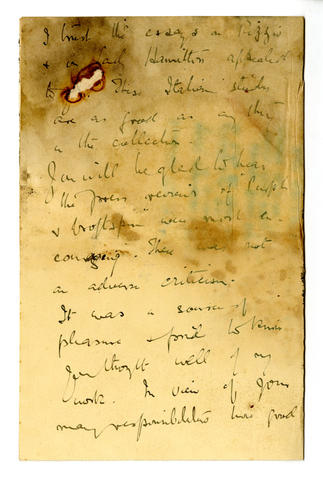 I trust the essays on Rizzio
& on Lady Hamilton appealed
to These Italian studies
are as good as any thing
in the collection.
You will be gled to hear
the press reviews of
& were most en-
couraging. There was not
an adverse criticism.
It was a source of
pleasure & pride to
You thought well of my
work. In view of your
many responsibilities how good